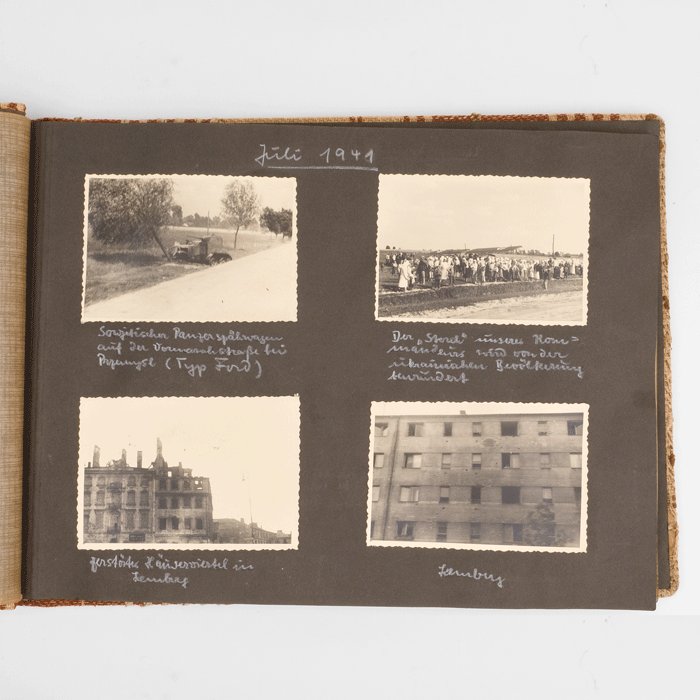 Juli 1941
Sowjetischer Panzerspähwagen
auf der Vormarschstraße bei
Przemysl (Typ Ford)
Der „Storch" unseres Kom=
mandeurs wird von der
ukrainischen Bevölkerung
bewundert
zerstörtes Häuserviertel in
Lemberg
Lemberg